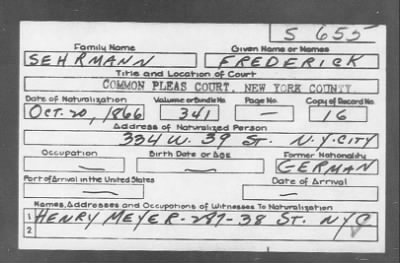 S 655
Family Name Given Name or Names
SEHRMANN FREDERICK
Title and Location of Court
COMMON PLEAS COURT, NEW YORK COUNTY
Date of Naturalization Volume or Bundle No. Page No. Copy of Record No.
OCT. 20, 1866 341 — 16
Address of Naturalized Person
334 W. 39 ST. N.Y. CITY
Occupation Birth Date or Age Former Nationality
— — GERMAN
Port of Arrival in the United States Date of Arrival
— —
Names, Addresses and Occupations of Witnesses To Naturalization
1 HENRY MEYER - 287 - 38 ST. NYC
2